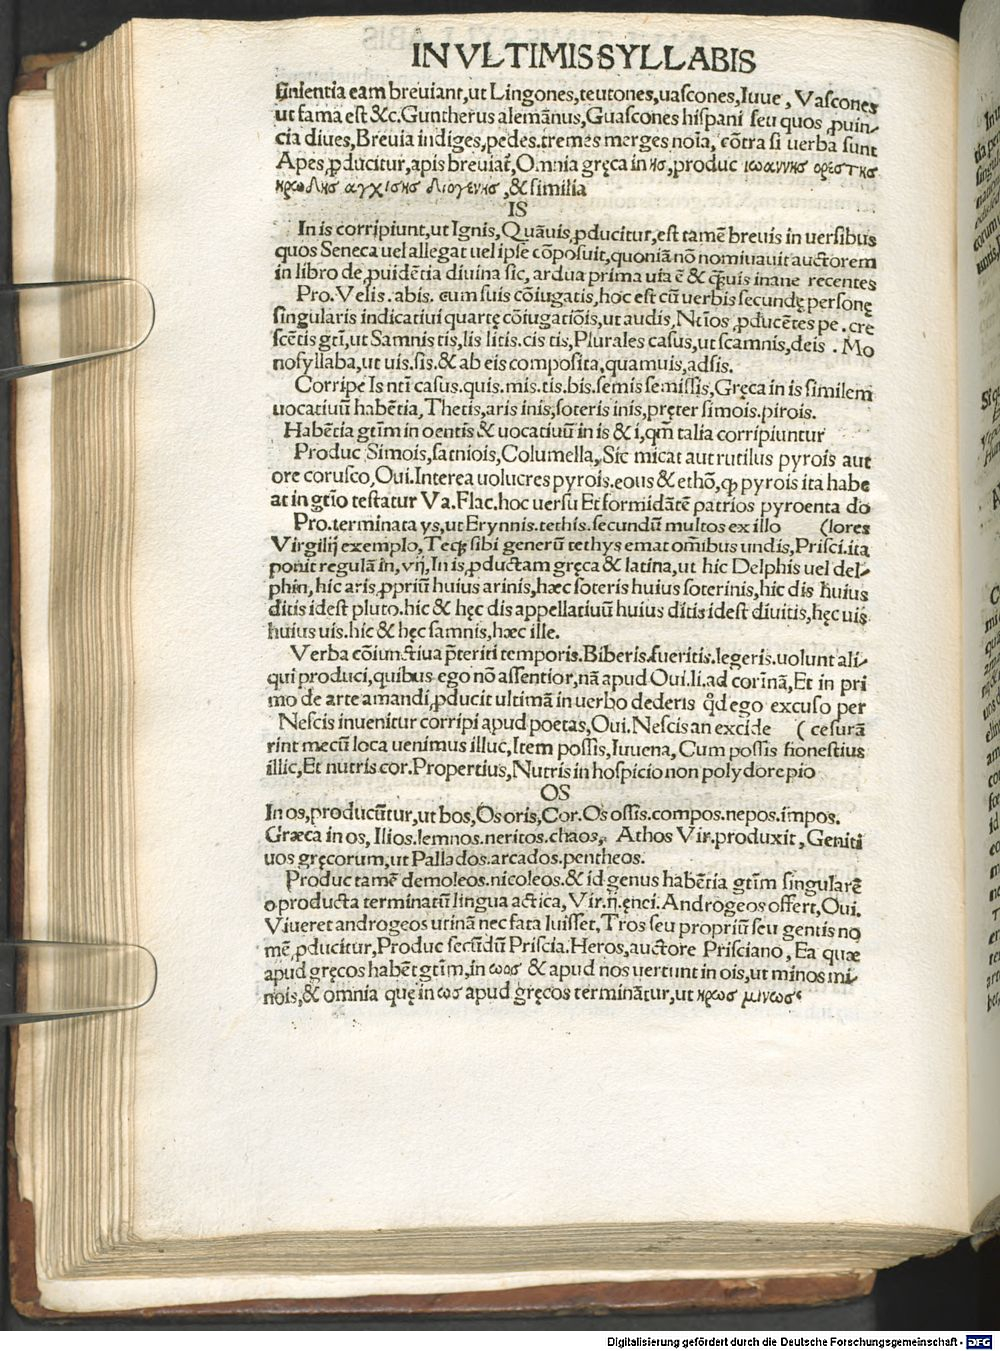 IN VLTIMIS SYLLABIS
finientia eam breuiant,ut Lingones,teutones,uascones,Iuue, Vascones
ut fama est &c.Guntherus alemānus,Guascones hispani seu quos ꝓuin-
cia diues,Breuia indiges,pedes.tremes merges noīa, cōtra si uerba sunt
Apes,ꝓducitur,apis breuiat᷑,Omnia gręca in ης,produc ιωαννης ορεστης
ηρωδης αγχισης διογενης,& similia
IS
In is corripiunt,ut Ignis,Quāuis,ꝓducitur,est tamē breuis in uersibus
quos Seneca uel allegat uel ipse cōposuit,quoniā nō nominauit auctorem
in libro de ꝓuidētia diuina sic, ardua prima uia ē & ꝗuis inane recentes
Pro.Velis.abis. cum suis cōiugatis,hoc est cū uerbis secundę personę
singularis indicatiui quartę cōiugatiōis,ut audis,Ntīos ꝓducētes pe.cre
scētis gtī,ut Samnis tis,lis litis.cis tis,Plurales casus,ut scamnis,deis.Mo
nosyllaba,ut uis.sis.& ab eis composita,quamuis,adsis.
Corripe Is ntī casus.quis.mis.tis.bis.semis semissis,Gręca in is similem
uocatiuū habētia,Thetis,aris inis,soteris inis,pręter simois.pirois.
Habētia gtīm in oentis & uocatiuū in is & i,qm̄ talia corripiuntur
Produc Simois,satniois,Columella,Sic micat aut rutilus pyrois aut
ore corusco,Oui.Interea uolucres pyrois.eous & ethō,ꝙ pyrois ita habe
at in gtīo testatur Va.Flac.hoc uersu Et formidātē patrios pyroenta do
Pro.terminata ys,ut Erynnis.tethis.secundū multos ex illo (lores
Virgilij exemplo,Teꝗ sibi generū tethys emat om̄ibus undis,Prisci.ita
ponit regulā in,vij,In is,ꝓductam gręca & latina,ut hic Delphis uel del-
phin,hic aris ꝓpriū huius arinis,hæc soteris huius soterinis,hic dis huius
ditis idest pluto.hic & hęc dis appellatiuū huius ditis idest diuitis,hęc uis
huius uis.hic & hęc samnis,hæc ille.
Verba cōiunctiua p̄teriti temporis.Biberis.fueritis.legeris.uolunt ali-
qui produci,quibus ego nō assentior,nā apud Oui.li.ad corīnā,Et in pri
mo de arte amandi,ꝓducit ultimā in uerbo dederis qd̄ ego excuso per
Nescis inuenitur corripi apud poetas,Oui.Nescis an excide (cesurā
rint mecū loca uenimus illuc,Item possis,Iuuena,Cum possis honestius
illic,Et nutris.cor.Propertius,Nutris in hospicio non polydore pio
OS
In os,producūtur,ut bos,Os oris,Cor.Os ossis.compos.nepos.impos.
Græca in os, Ilios.lemnos.neritos.chaos, Athos Vir.produxit,Geniti
uos gręcorum,ut Pallados.arcados.pentheos.
Produc tamē demoleos.nicoleos.& id genus habētia gtīm singularē
o producta terminatū lingua actica,Vir.ij.ęnei.Androgeos offert,Oui.
Viueret androgeos utinā nec fata luisset,Tros seu propriū seu gentis no
mē,ꝓducitur,Produc secūdū Priscia.Heros,auctore Prisciano,Ea quæ
apud gręcos habēt gtīm,in ωος & apud nos uertunt in ois,ut minos mi-
nois,& omnia quę in ως apud gręcos terminātur,ut ηρως μινως
Digitalisierung gefördert durch die Deutsche Forschungsgemeinschaft - DFG